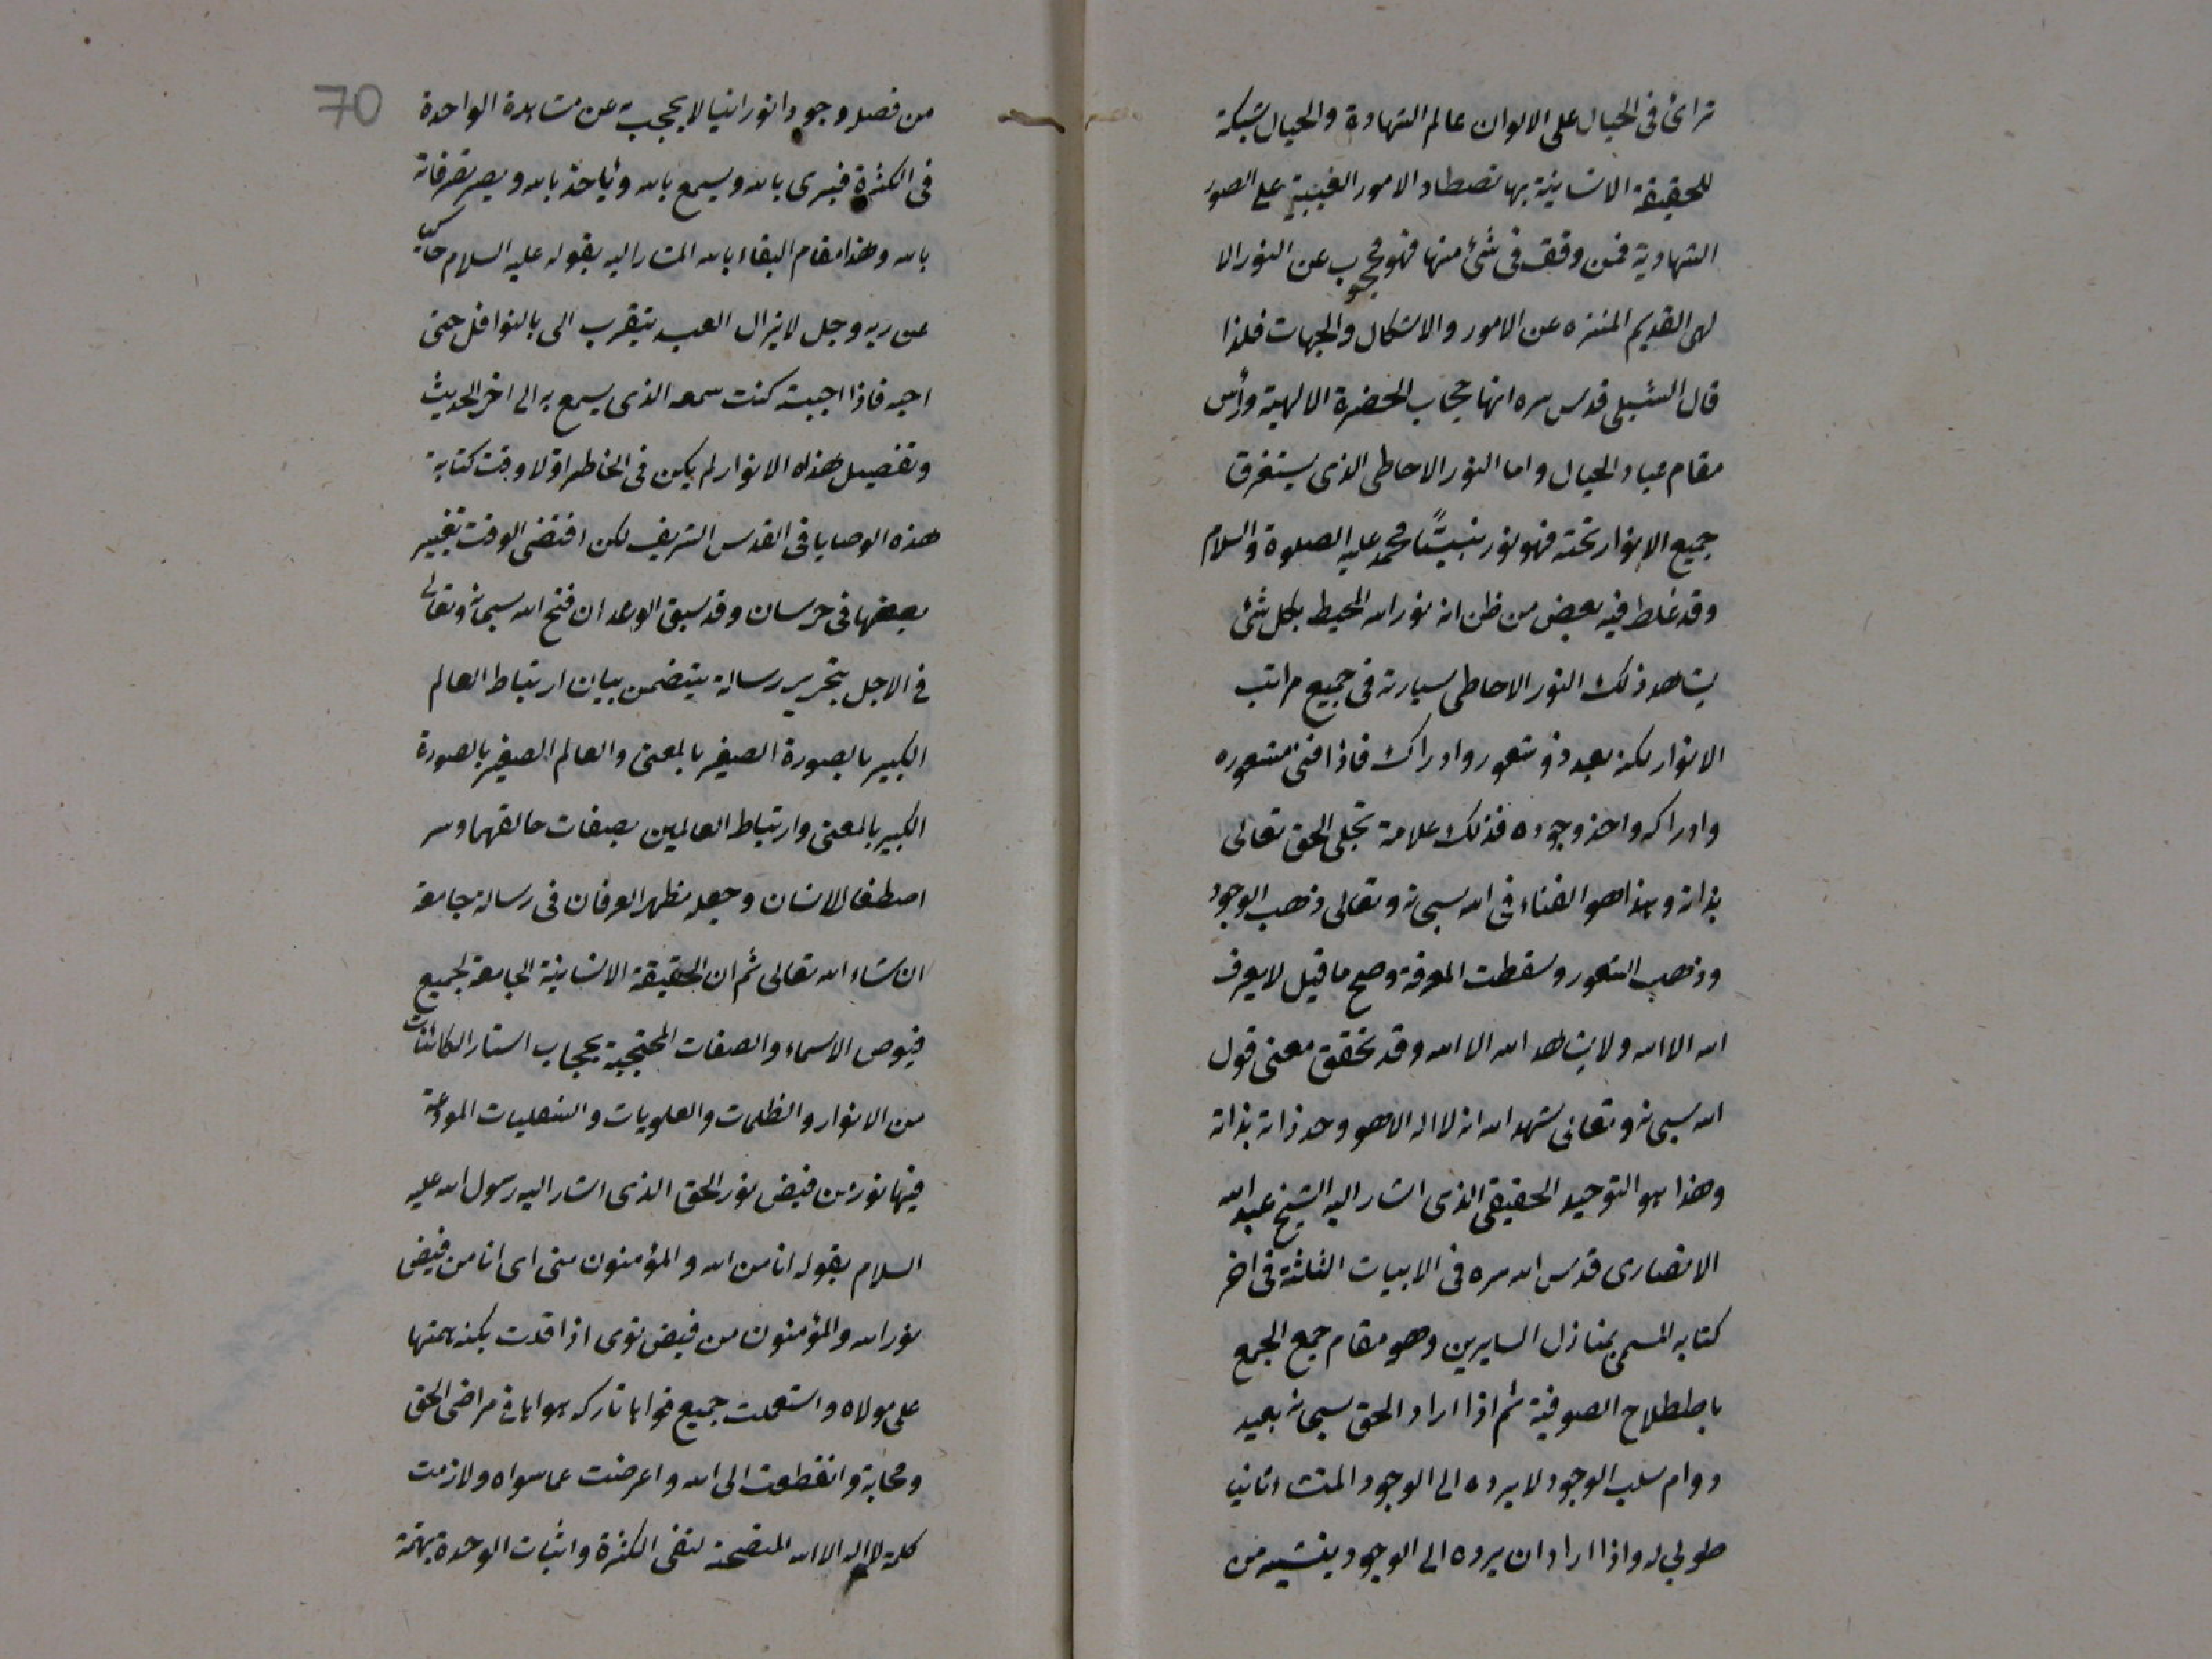 ترائ فى الخيال على الالوان عالم الشهادة والخيال شبكة
للحقيقة الانسانية بها تصطاد الامور الغيبية على الصور
الشهادية فمن وقف فى شئ منها فهو محجوب عن النور الا
لهى القديم المنزه عن الامور والاشكال والجهات فلذا
قال الشبلى قدس سره انها حجاب الحضرة الالهية ورأس
مقام عباد الخيال واما النور الاحاطى الذى يستغرق
جميع الانوار تحته فهو نور نبيّنا محمد عليه الصلوة والسلام
وقد غلط فيه بعض من ظن انه نور الله المحيط بكل شئ
يشاهد ذلك النور الاحاطى سيارته فى جميع مراتب
الانوار لكنه بعد ذو شعور وادراك فاذا فنى شعوره
وادراكه واخذ وجوده فذلك علامة تجلى الحق تعالى
بذاته وهذا هو الفناء فى الله سبحانه وتعالى وذهب الوجود
وذهب الشعور وسقطت المعرفة وصح ما قيل لا يعرف
الله الا الله ولا يشاهد الله الا الله وقد تحقق معنى قول
الله سبحانه وتعالى شهد الله انه لا اله الا هو وحد ذاته بذاته
وهذا هو التوحيد الحقيقى الذى اشار اليه الشيخ عبد الله
الانصارى قدس الله سره فى الابيات الثلثة فى اخر
كتابه المسمى بمنازل السايرين وهو مقام جمع الجمع
باصطلاح الصوفية ثم اذا اراد الحق سبحانه بعبد
دوام سلب الوجود لا يرده الى الوجود المنشاء ثانيا
طوبى له واذا اراد ان يرده الى الوجود ينشيه من
70
من فضله وجودا نورانيا لا يحجبه عن مشاهدة الواحدة
فى الكثرة فيرى بالله ويسمع بالله وياخذ بالله ويصير تصرفاته
بالله وهذا مقام البقاء بالله المشار اليه بقوله عليه السلام حكاية
عن ربه وجل لا يزال العبد يتقرب الى بالنوافل حتى
احبه فاذا احببته كنت سمعه الذى يسمع به الى اخر الحديث
وتفصيل هذه الانوار لم يكن فى الخاطر اولا وقت كتابة
هذه الوصايا فى القدس الشريف لكن اقتضى الوقت تغيير
بعضها فى خرسان وقد سبق الوعد ان فتح الله سبحانه وتعالى
فى الاجل بتحرير رسالة يتضمن بيان ارتباط العالم
الكبير بالصورة الصغير بالمعنى والعالم الصغير بالصورة
الكبير بالمعنى وارتباط العالمين بصفات خالقهما وسر
اصطفا الانسان وجعله مظهر العرفان فى رسالة جامعة
ان شاء الله تعالى ثم ان الحقيقة الانسانية الجامعة لجميع
فيوض الاسماء والصفات المحتجبة بحجاب استار الكائنات
من الانوار والظلمات والعلويات والسفليات المودعة
فيها نور من فيض نور الحق الذى اشار اليه رسول الله عليه
السلام بقوله انا من الله والمؤمنون منى اى انا من فيض
نور الله والمؤمنون من فيض نورى اذا اقبلت بكنه همتها
على مولاه واستعملت جميع قواها تاركه هواها فى مراضى الحق
ومحابه وانقطعت الى الله واعرضت عما سواه ولازمت
كلمة لا اله الا الله المتضمنة لنفى الكثرة واثبات الوحدة بهمة